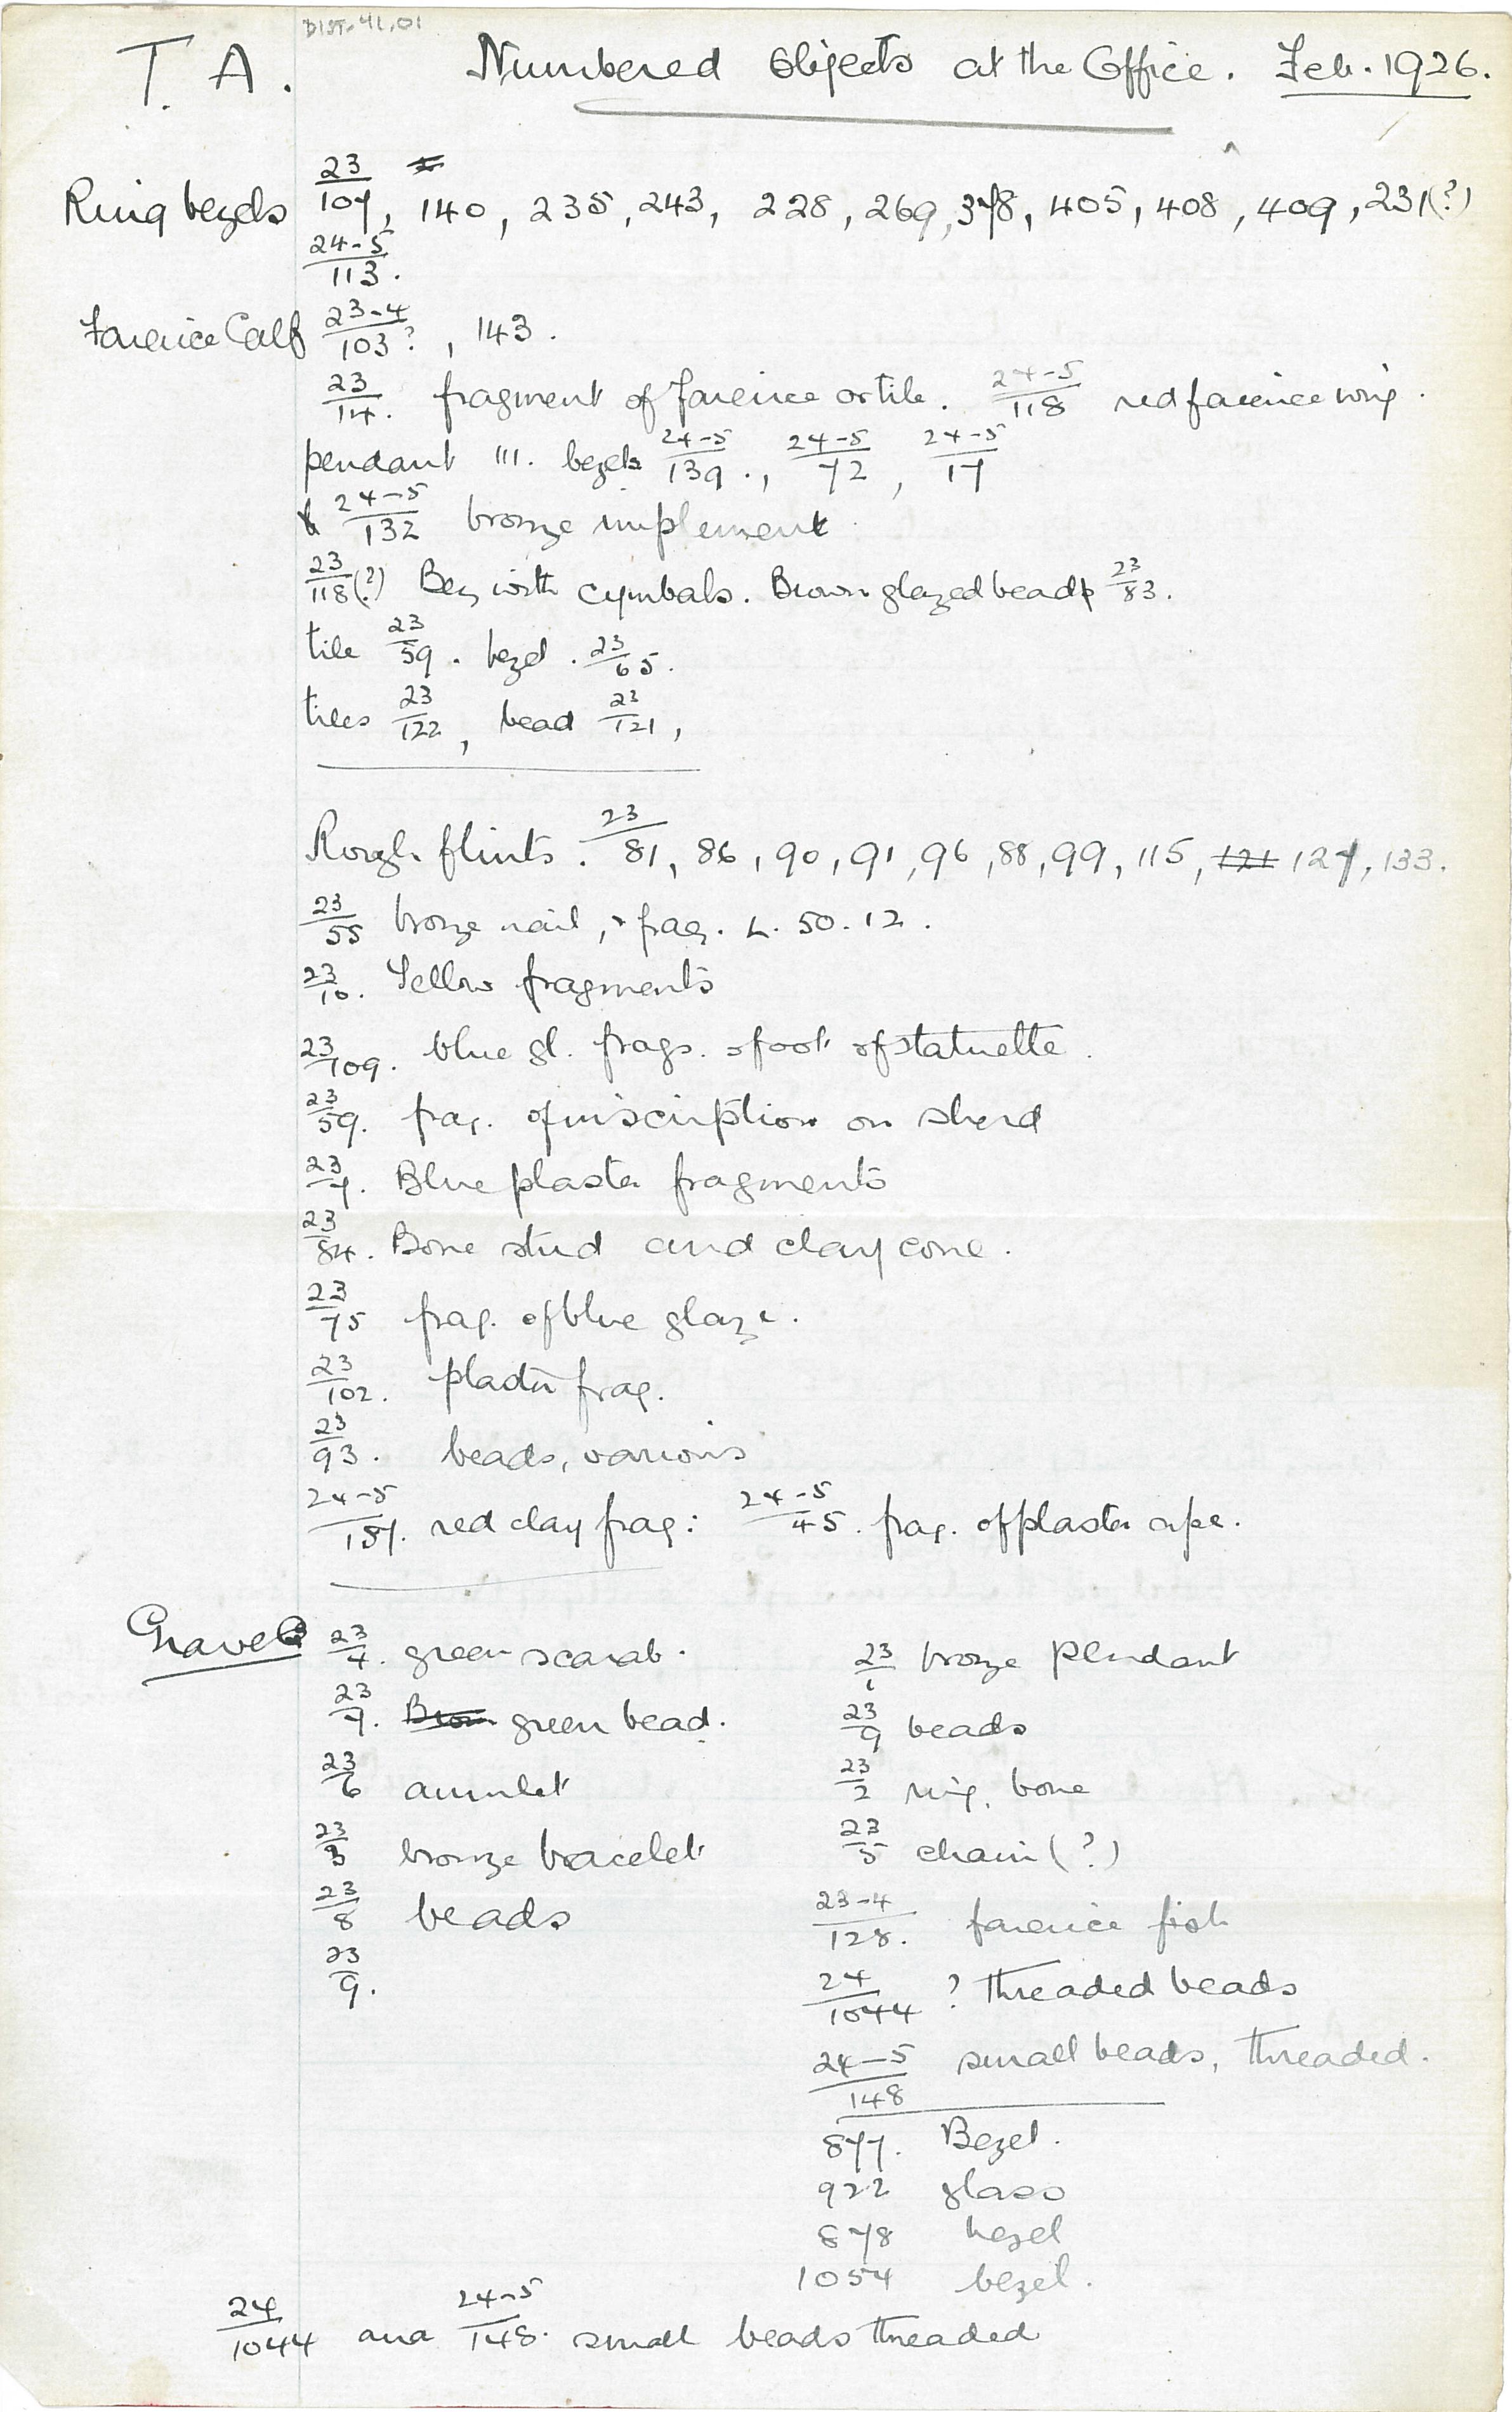 DIST. 41.01
T. A. Numbered Objects at the Office. Feb. 1926.
Ring bezels 23/107, 140, 235, 243, 228, 269, 378, 405, 408, 409, 231(?)
24-5/113.
Faience Calf 23-4/103?, 143.
23/14. fragment of faience or tile. 24-5/118 red faience ring.
pendant III. bezels 24-5/139., 24-5/72, 24-5/17
24-5/132 bronze implement
23/118(?) Bes with cymbals. Brown glazed bead 23/83.
tile 23/59. bezel. 23/65.
tiles 23/122, bead 23/121,
Rough flints. 23/81, 86, 90, 91, 96, 88, 99, 115, 121 127, 133.
23/55 bronze nail, & frag. L. 50. 12.
23/10. Yellow fragments
23/109. blue gl. frags. of statuette.
23/59. frag. of inscription on sherd
23/7. Blue plaster fragments
23/84. Bone stud and clay cone.
23/75 frag. of blue glaze.
23/102. plaster frag.
23/93. beads, various
24-5/157. red clay frag: 24-5/45. frag. of plaster ape.
Graves 23/4. green scarab.
23/7. Brown green bead.
23/6 amulet
23/3 bronze bracelet
23/8 beads
23/9.
23/1 bronze pendant
23/9 beads
23/2 ring, bone
23/5 chain (?)
23-4/128. faience fish
24/1044 ? threaded beads
24-5/148 small beads, threaded.
877. Bezel.
922 glass
878 bezel
1054 bezel.
24/1044 and 24-5/148. small beads threaded